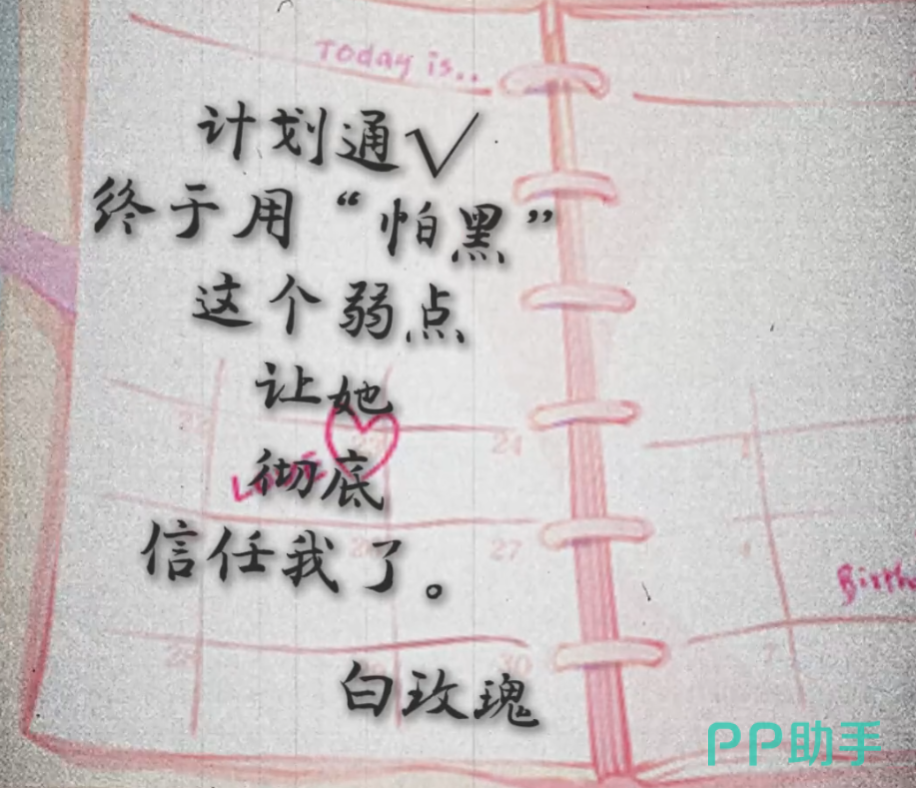 Today is..
计划通√
终于用“怕黑”
这个弱点
让她
24
LOVE
彻底
27
信任我了。
Birth
30
白玫瑰
PP助手